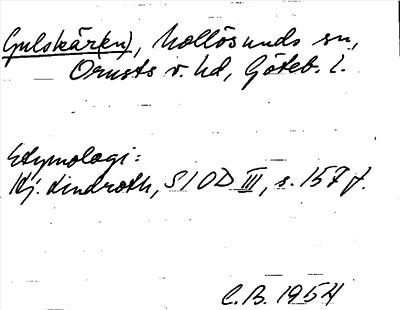 Gulskär(en), Mollösunds sn,
Orusts v. hd, Göteb. l.
Etymologi:
Hj. Lindroth, SIOD III, s. 157 f.
C.B. 1954